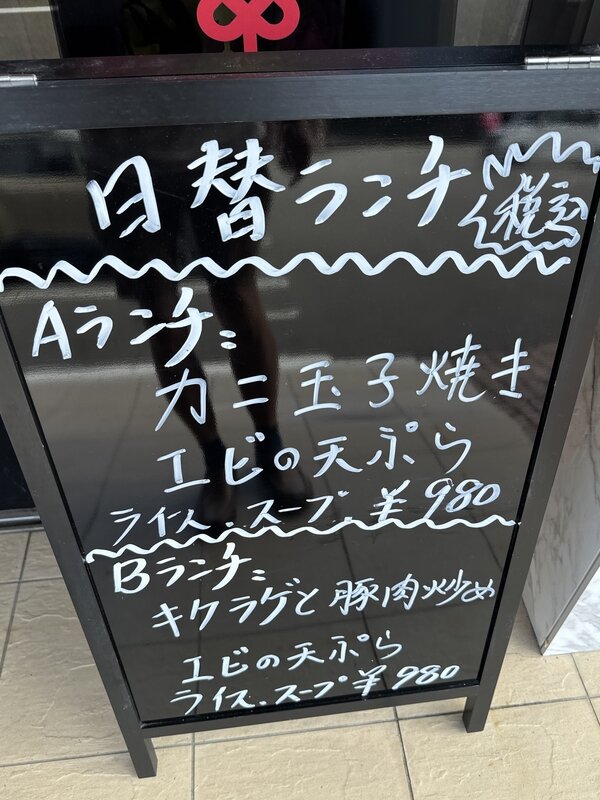 日替ランチ 税込
Aランチ:
カニ玉子焼き
エビの天ぷら
ライス.スープ.¥980
Bランチ:
キクラゲと豚肉炒め
エビの天ぷら
ライス.スープ¥980